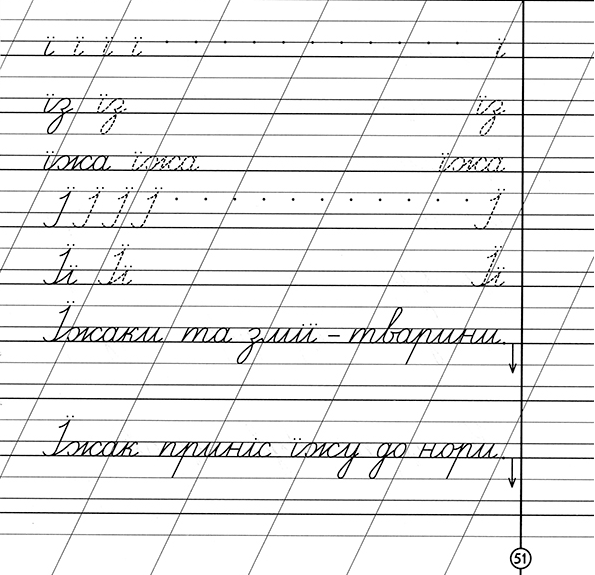 ї ї ї ї ї
їз їз їз
їжа їжа їжа
Ї Ї Ї Ї Ї
Її Її Її
Їжаки та змії – тварини.
Їжак приніс їжу до нори.
51